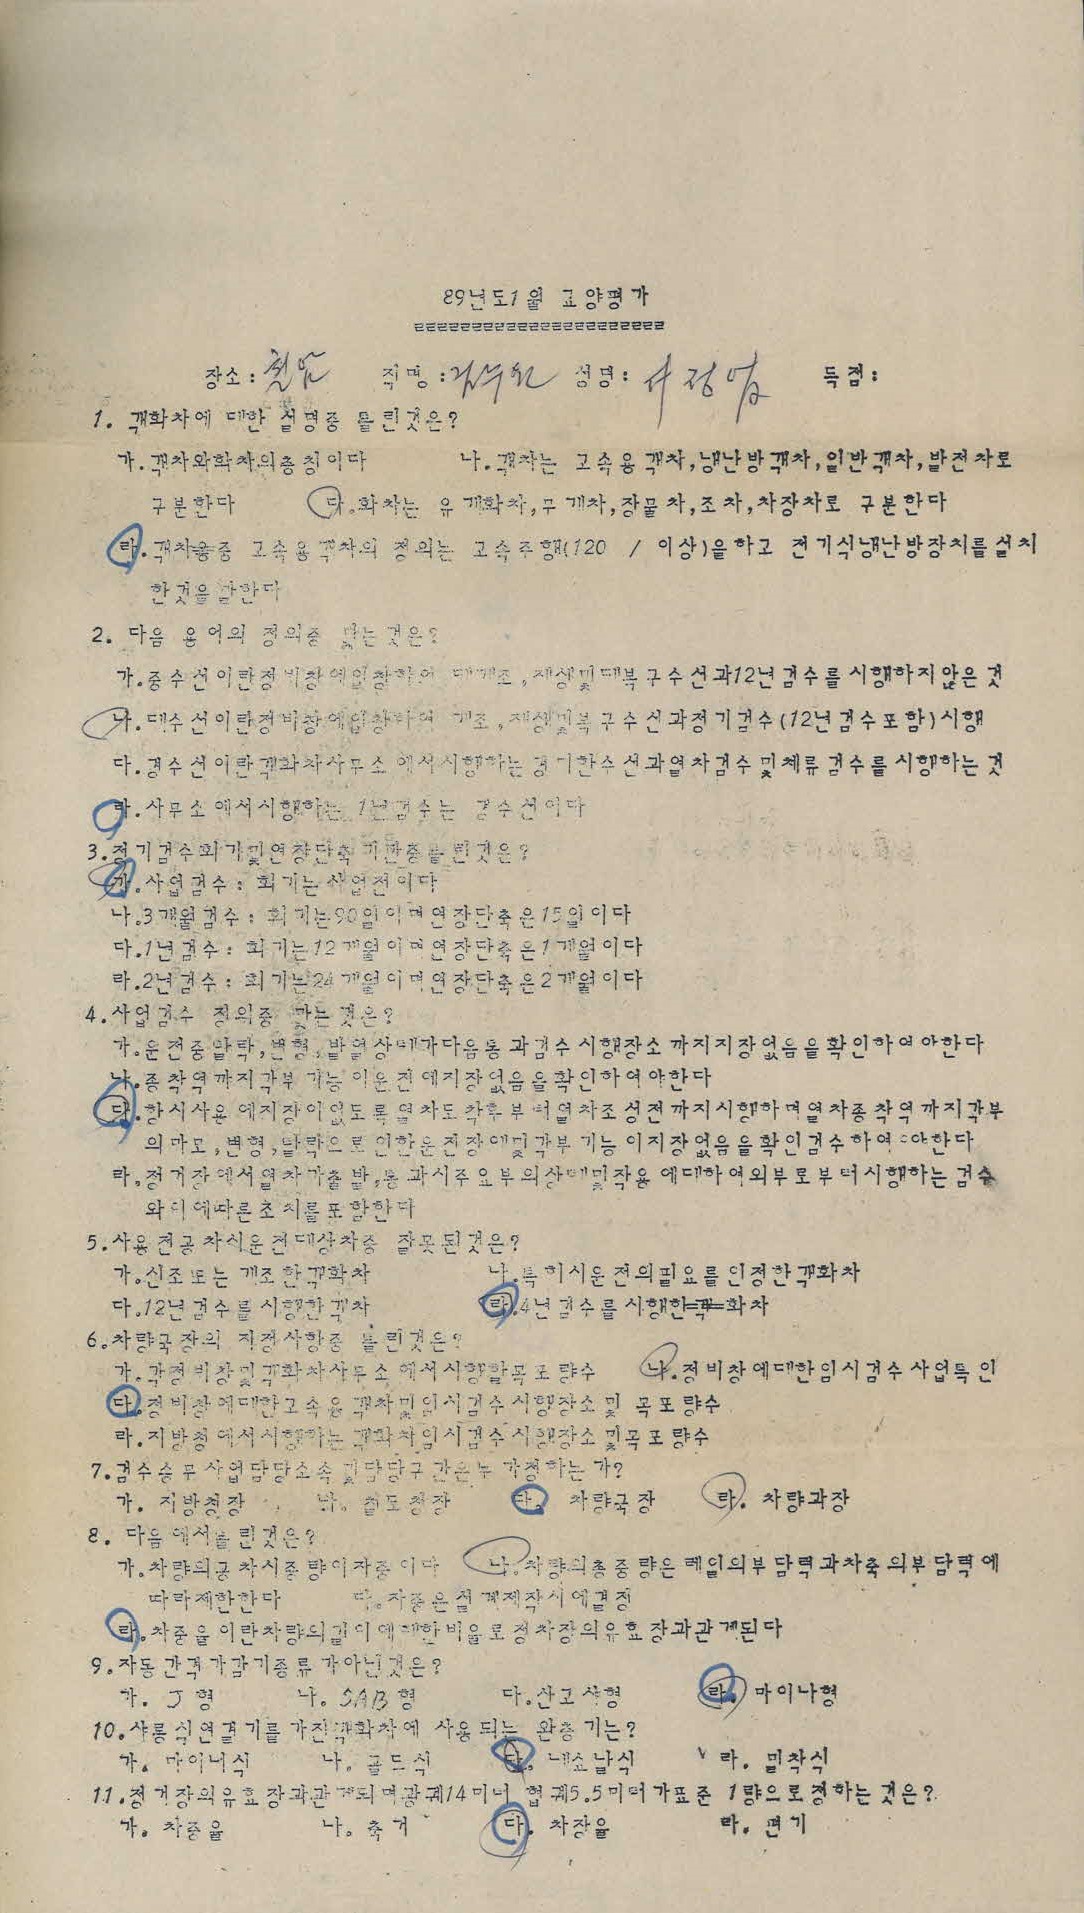 89년도1월 교양평가
장소: 철암 직명: 검수원 성명: 득점:
1. 객화차에 대한 설명중 틀린것은?
가.객차와화차의총칭이다 나.객차는 고속용객차,냉난방객차,일반객차,발전차로
구분한다 다.화차는 유개화차,무개차,장물차,조차,차장차로 구분한다
라.객차중 고속용객차의 정의는 고속주행(120 / 이상)을하고 전기식냉난방장치를설치
한것을말한다
2. 다음 용어의 정의중 맞는것은?
가.중수선이란정비창에입창하여 대개조,재생및대복구수선과12년검수를시행하지않은것
나.대수선이란정비창에입창하여 개조,재생및복구수선과정기검수(12년검수포함)시행
다.경수선이란객화차사무소에서시행하는경미한수선과열차검수및체류검수를시행하는것
라.사무소에서시행하는 1년검수는 경수선이다
3.정기검수회기및연장단축기간중틀린것은?
가.사업검수: 회기는사업전이다
나.3개월검수: 회기는90일이며연장단축은15일이다
다.1년검수: 회기는12개월이며연장단축은1개월이다
라.2년검수: 회기는24개월이며연장단축은2개월이다
4.사업검수 정의중 맞는것은?
가.운전중탈락,변형,발열상태가다음통과검수시행장소까지지장없음을확인하여야한다
나.종착역까지각부기능이운전에지장없음을확인하여야한다
다.항시사용에지장이없도록열차도착후부터열차조성전까지시행하며열차종착역까지각부
의마모,변형,탈락으로인한운전장애및각부기능이지장없음을확인검수하여야한다
라.정거장에서열차가출발,통과시주요부의상태및작용에대하여외부로부터시행하는검수
와이에따른조치를포함한다
5.사용전공차시운전대상차중 잘못된것은?
가.신조또는개조한객화차 나.특히시운전의필요를인정한객화차
다.12년검수를시행한객차 라.4년검수를시행한객화차
6.차량국장의 지정사항중 틀린것은?
가.각정비창및객화차사무소에서시행할목표량수 나.정비창에대한임시검수사업특인
다.정비창에대한고속용객차및임시검수시행장소및 목표량수
라.지방청에서시행하는객화차임시검수시행장소및목표량수
7.검수승무사업담당소속및담당구간은누가정하는가?
가. 지방청장 나. 철도청장 다. 차량국장 라. 차량과장
8. 다음에서틀린것은?
가.차량의공차시중량이자중이다 나.차량의총중량은레일의부담력과차축의부담력에
따라제한한다 다.자중은설계제작시에결정
라.차중율이란차량의길이에대한비율로정차장의유효장과관계된다
9.자동간격가감기종류가아닌것은?
가. J형 나. SAB형 다.산고사형 라. 마이나형
10.샤론식연결기를가진객화차에 사용되는 완충기는?
가. 마이너식 나. 골드식 다. 내쇼날식 라. 밀착식
11.정거장의유효장과관계되며광궤14미터 협궤5.5미터가표준 1량으로정하는것은?
가. 차중율 나. 축거 다. 차장율 라. 편기